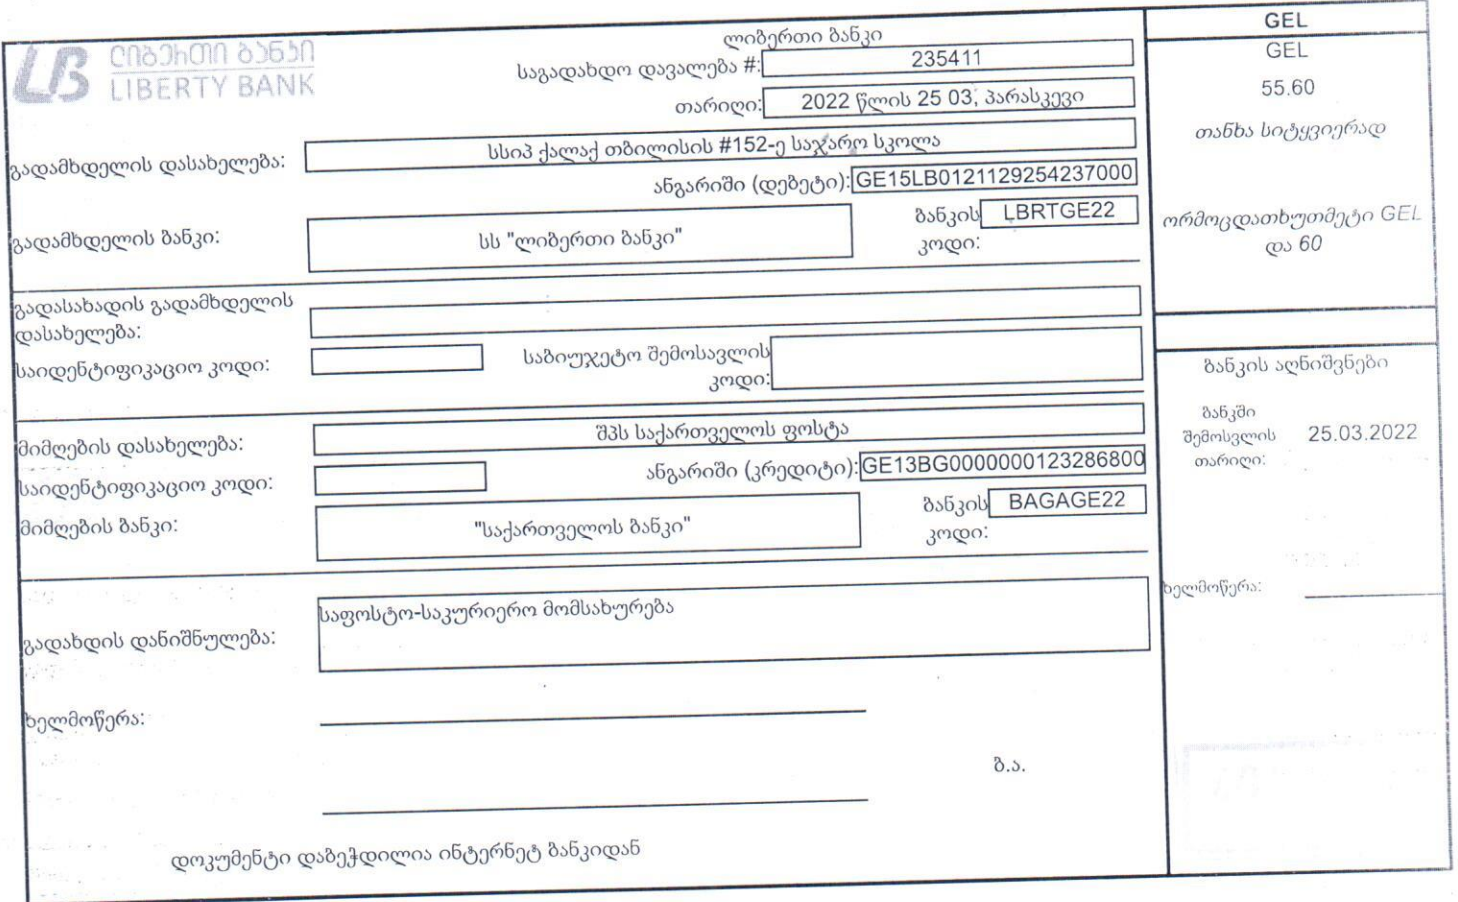 ლიბერთი ბანკი
LIBERTY BANK
ლიბერთი ბანკი
საგადახდო დავალება #: 235411
თარიღი: 2022 წლის 25 03, პარასკევი
გადამხდელის დასახელება: სსიპ ქალაქ თბილისის #152-ე საჯარო სკოლა
ანგარიში (დებეტი): GE15LB0121129254237000
გადამხდელის ბანკი: სს "ლიბერთი ბანკი"
ბანკის კოდი: LBRTGE22
გადასახადის გადამხდელის
დასახელება:
საიდენტიფიკაციო კოდი:
საბიუჯეტო შემოსავლის
კოდი:
მიმღების დასახელება: შპს საქართველოს ფოსტა
საიდენტიფიკაციო კოდი:
ანგარიში (კრედიტი): GE13BG0000000123286800
მიმღების ბანკი: "საქართველოს ბანკი"
ბანკის კოდი: BAGAGE22
გადახდის დანიშნულება: საფოსტო-საკურიერო მომსახურება
ხელმოწერა:
ბ.ა.
დოკუმენტი დაბეჭდილია ინტერნეტ ბანკიდან
GEL
GEL
55.60
თანხა სიტყვიერად
ორმოცდათხუთმეტი GEL
და 60
ბანკის აღნიშვნები
ბანკში
შემოსვლის 25.03.2022
თარიღი:
ხელმოწერა: